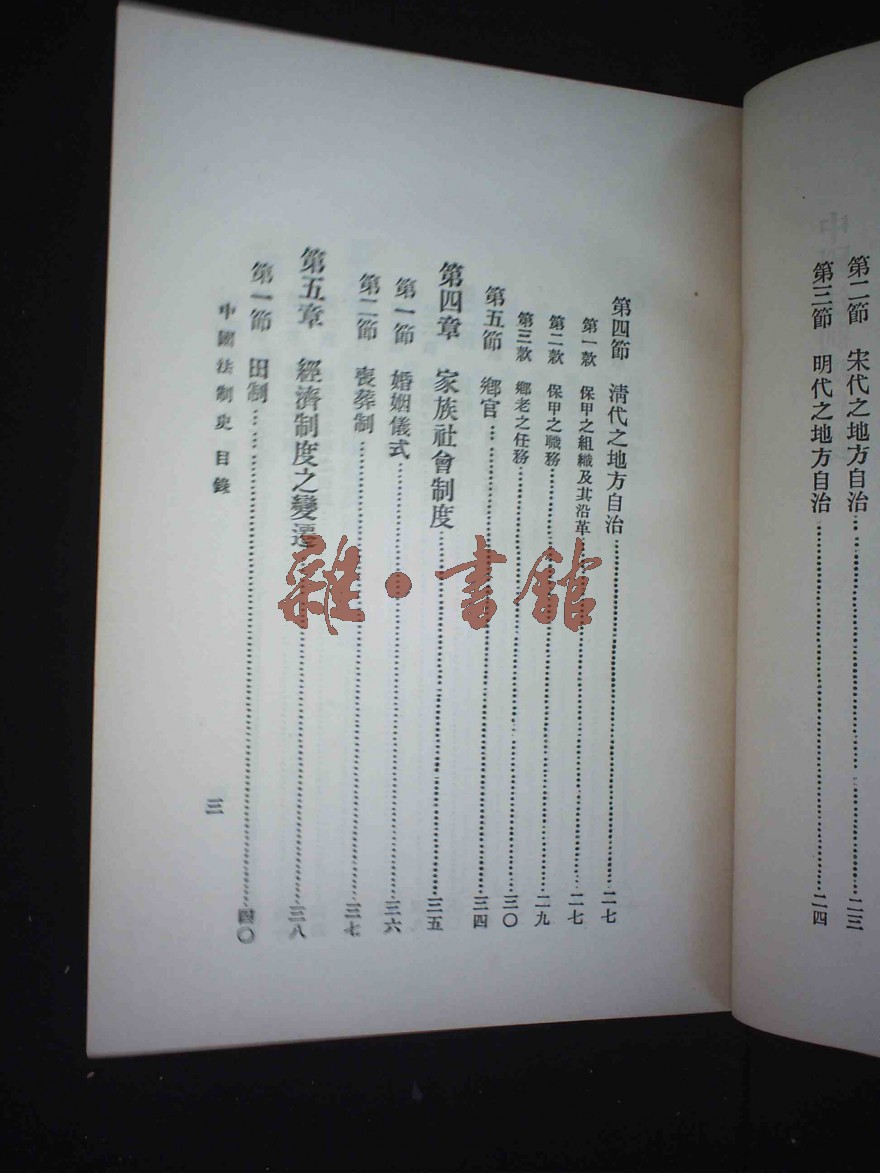 第二節 宋代之地方自治……二三
第三節 明代之地方自治……二四
第四節 清代之地方自治……二七
第一款 保甲之組織及其沿革……二七
第二款 保甲之職務……二九
第三款 鄉老之任務……三〇
第五節 鄉官……三四
第四章 家族社會制度……三五
第一節 婚姻儀式……三六
第二節 喪葬制……三七
第五章 經濟制度之變遷……三八
第一節 田制……四〇
中國法制史 目錄 三
雜·書館